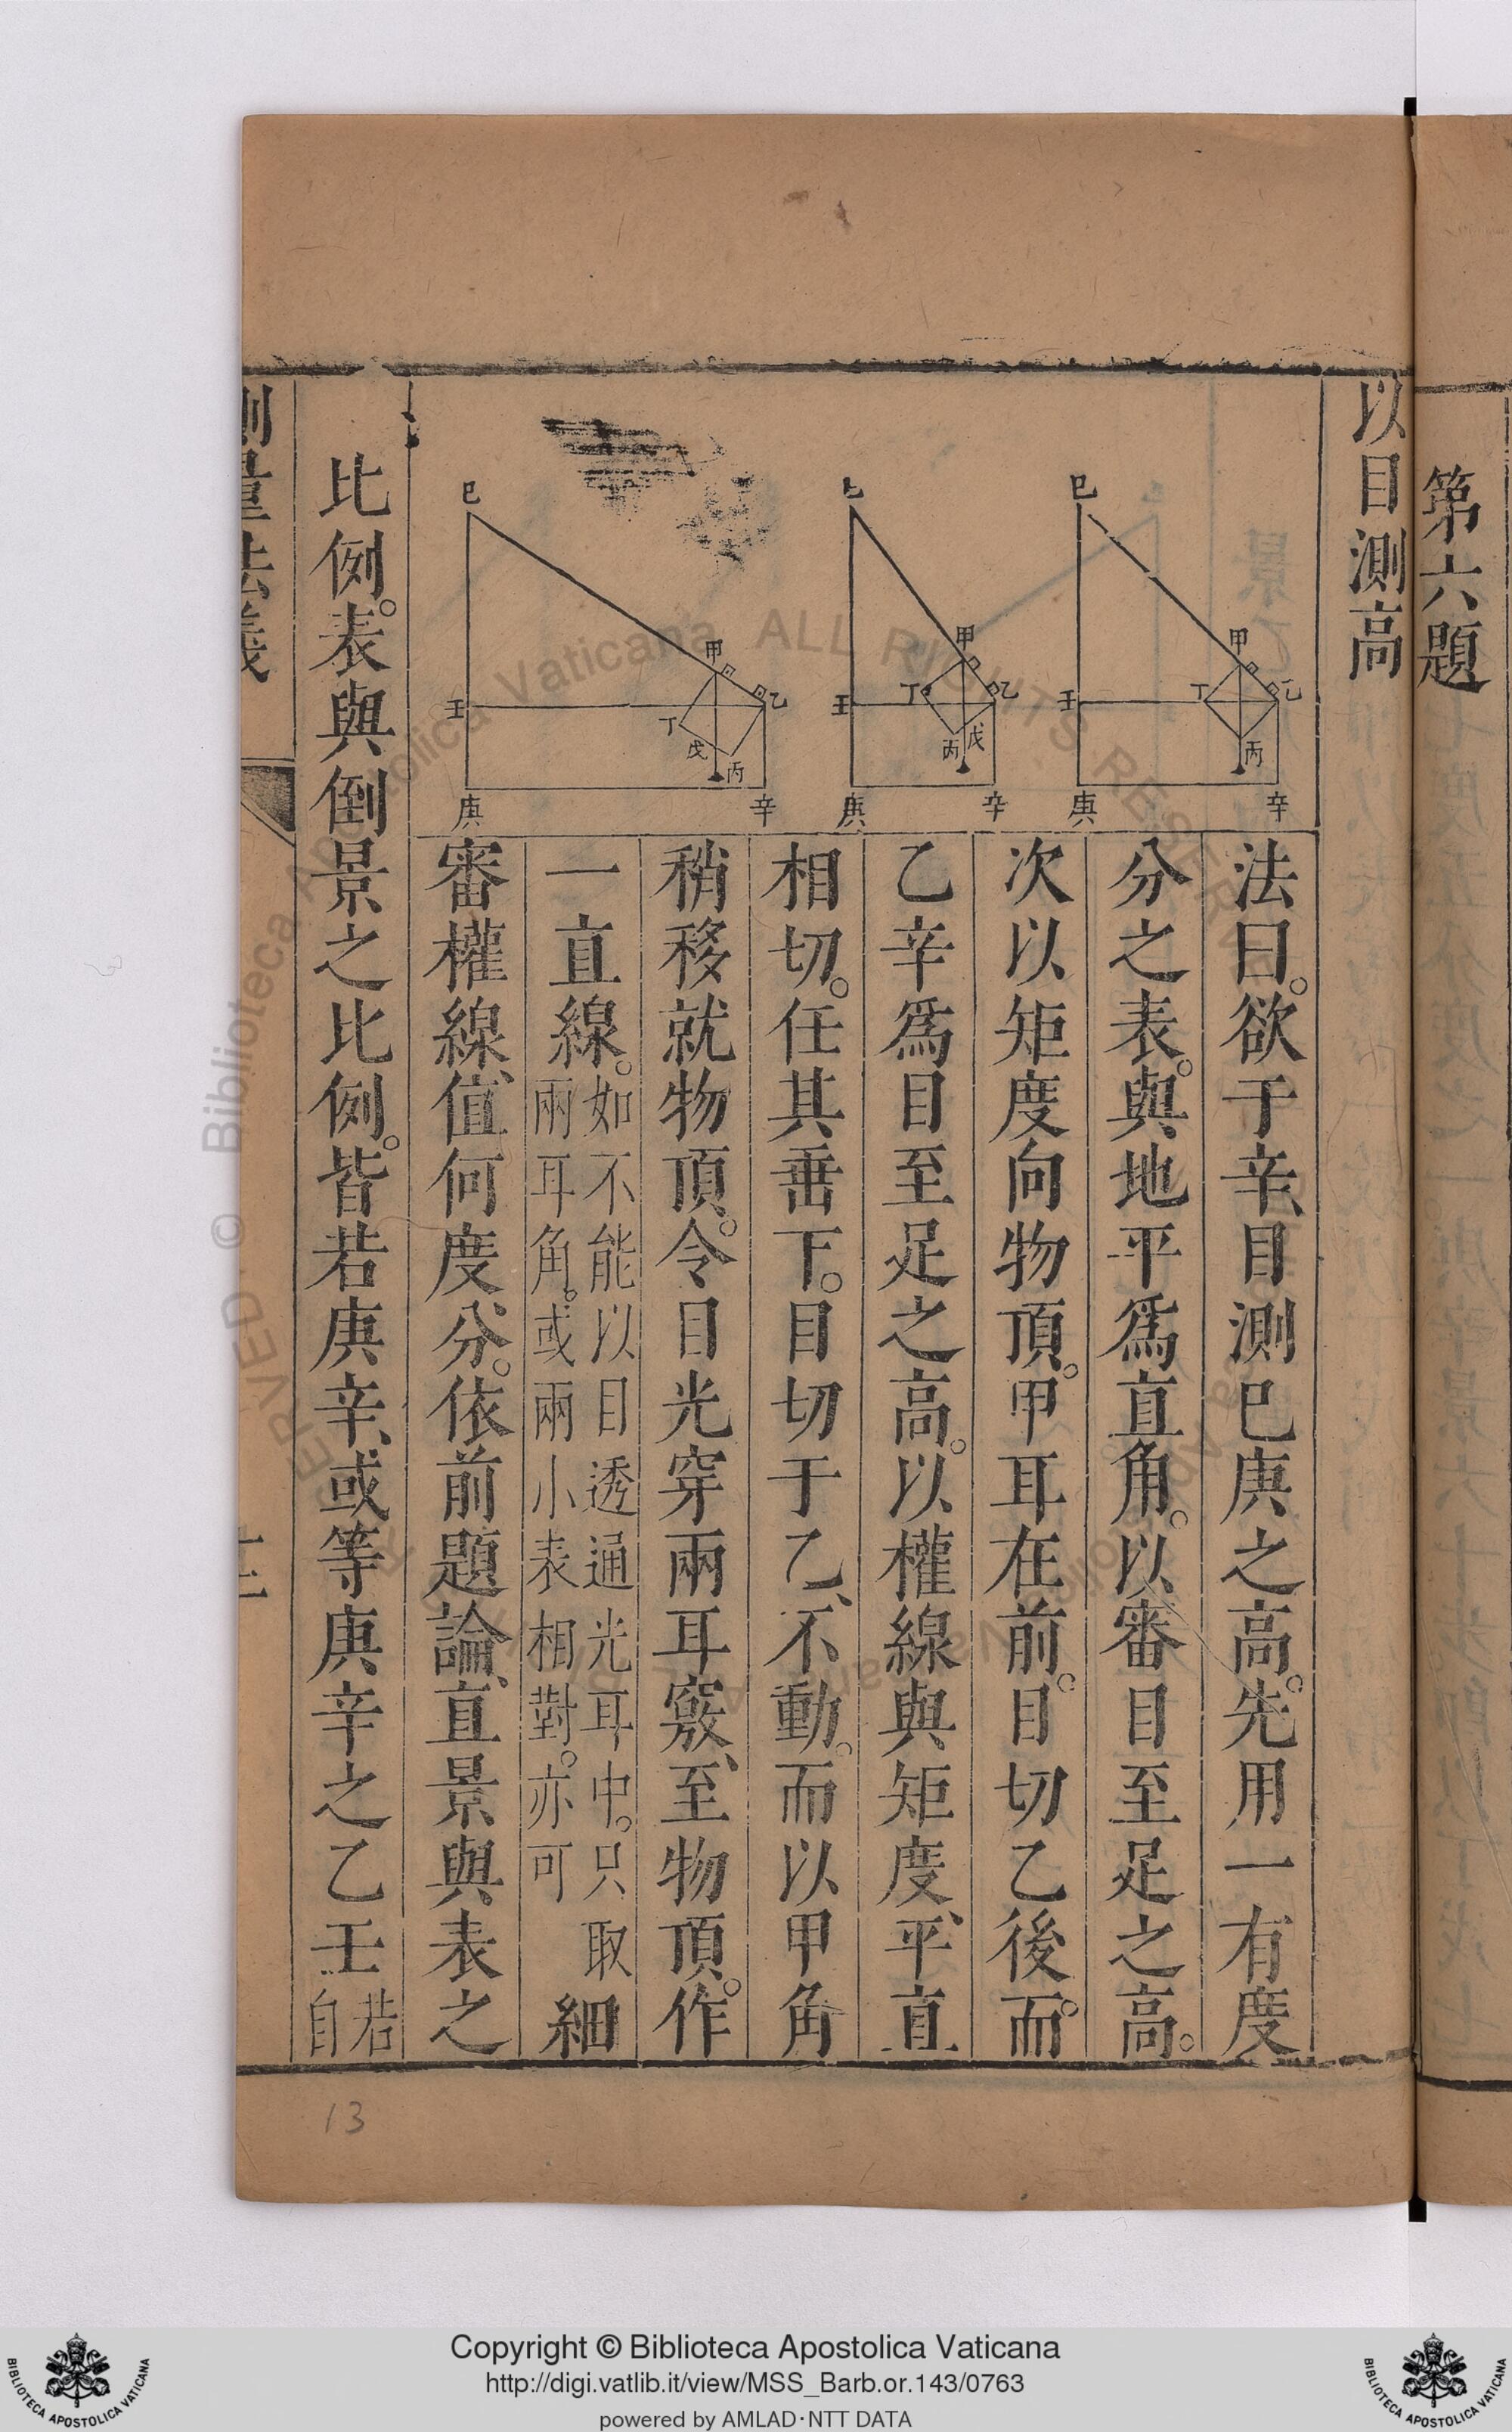 第六題
以目測高
巳 甲 乙 丁 丙 壬 庚 辛
巳 甲 乙 丁 丙 戊 壬 庚 辛
巳 甲 乙 丁 戊 丙 壬 庚 辛
法曰。欲于辛、目測巳庚之高。先用一有度
分之表。與地平爲直角。以審目至足之高。
次以矩度向物頂。甲耳在前。目切乙後。而
乙辛爲目至足之高。以權線與矩度、平直
相切。任其垂下。目切于乙、不動。而以甲角
稍移就物頂。令目光穿兩耳竅、至物頂。作
一直線。如不能以目透通光耳中。只取
兩耳角。或兩小表相對。亦可
細
審權線、値何度分。依前題論、直景與表之
比例。表與倒景之比例。皆若庚辛、或等庚辛之乙壬
若
自
測量法義
Copyright © Biblioteca Apostolica Vaticana
http://digi.vatlib.it/view/MSS_Barb.or.143/0763
powered by AMLAD·NTT DATA
BIBLIOTECA APOSTOLICA VATICANA
BIBLIOTECA APOSTOLICA VATICANA
13